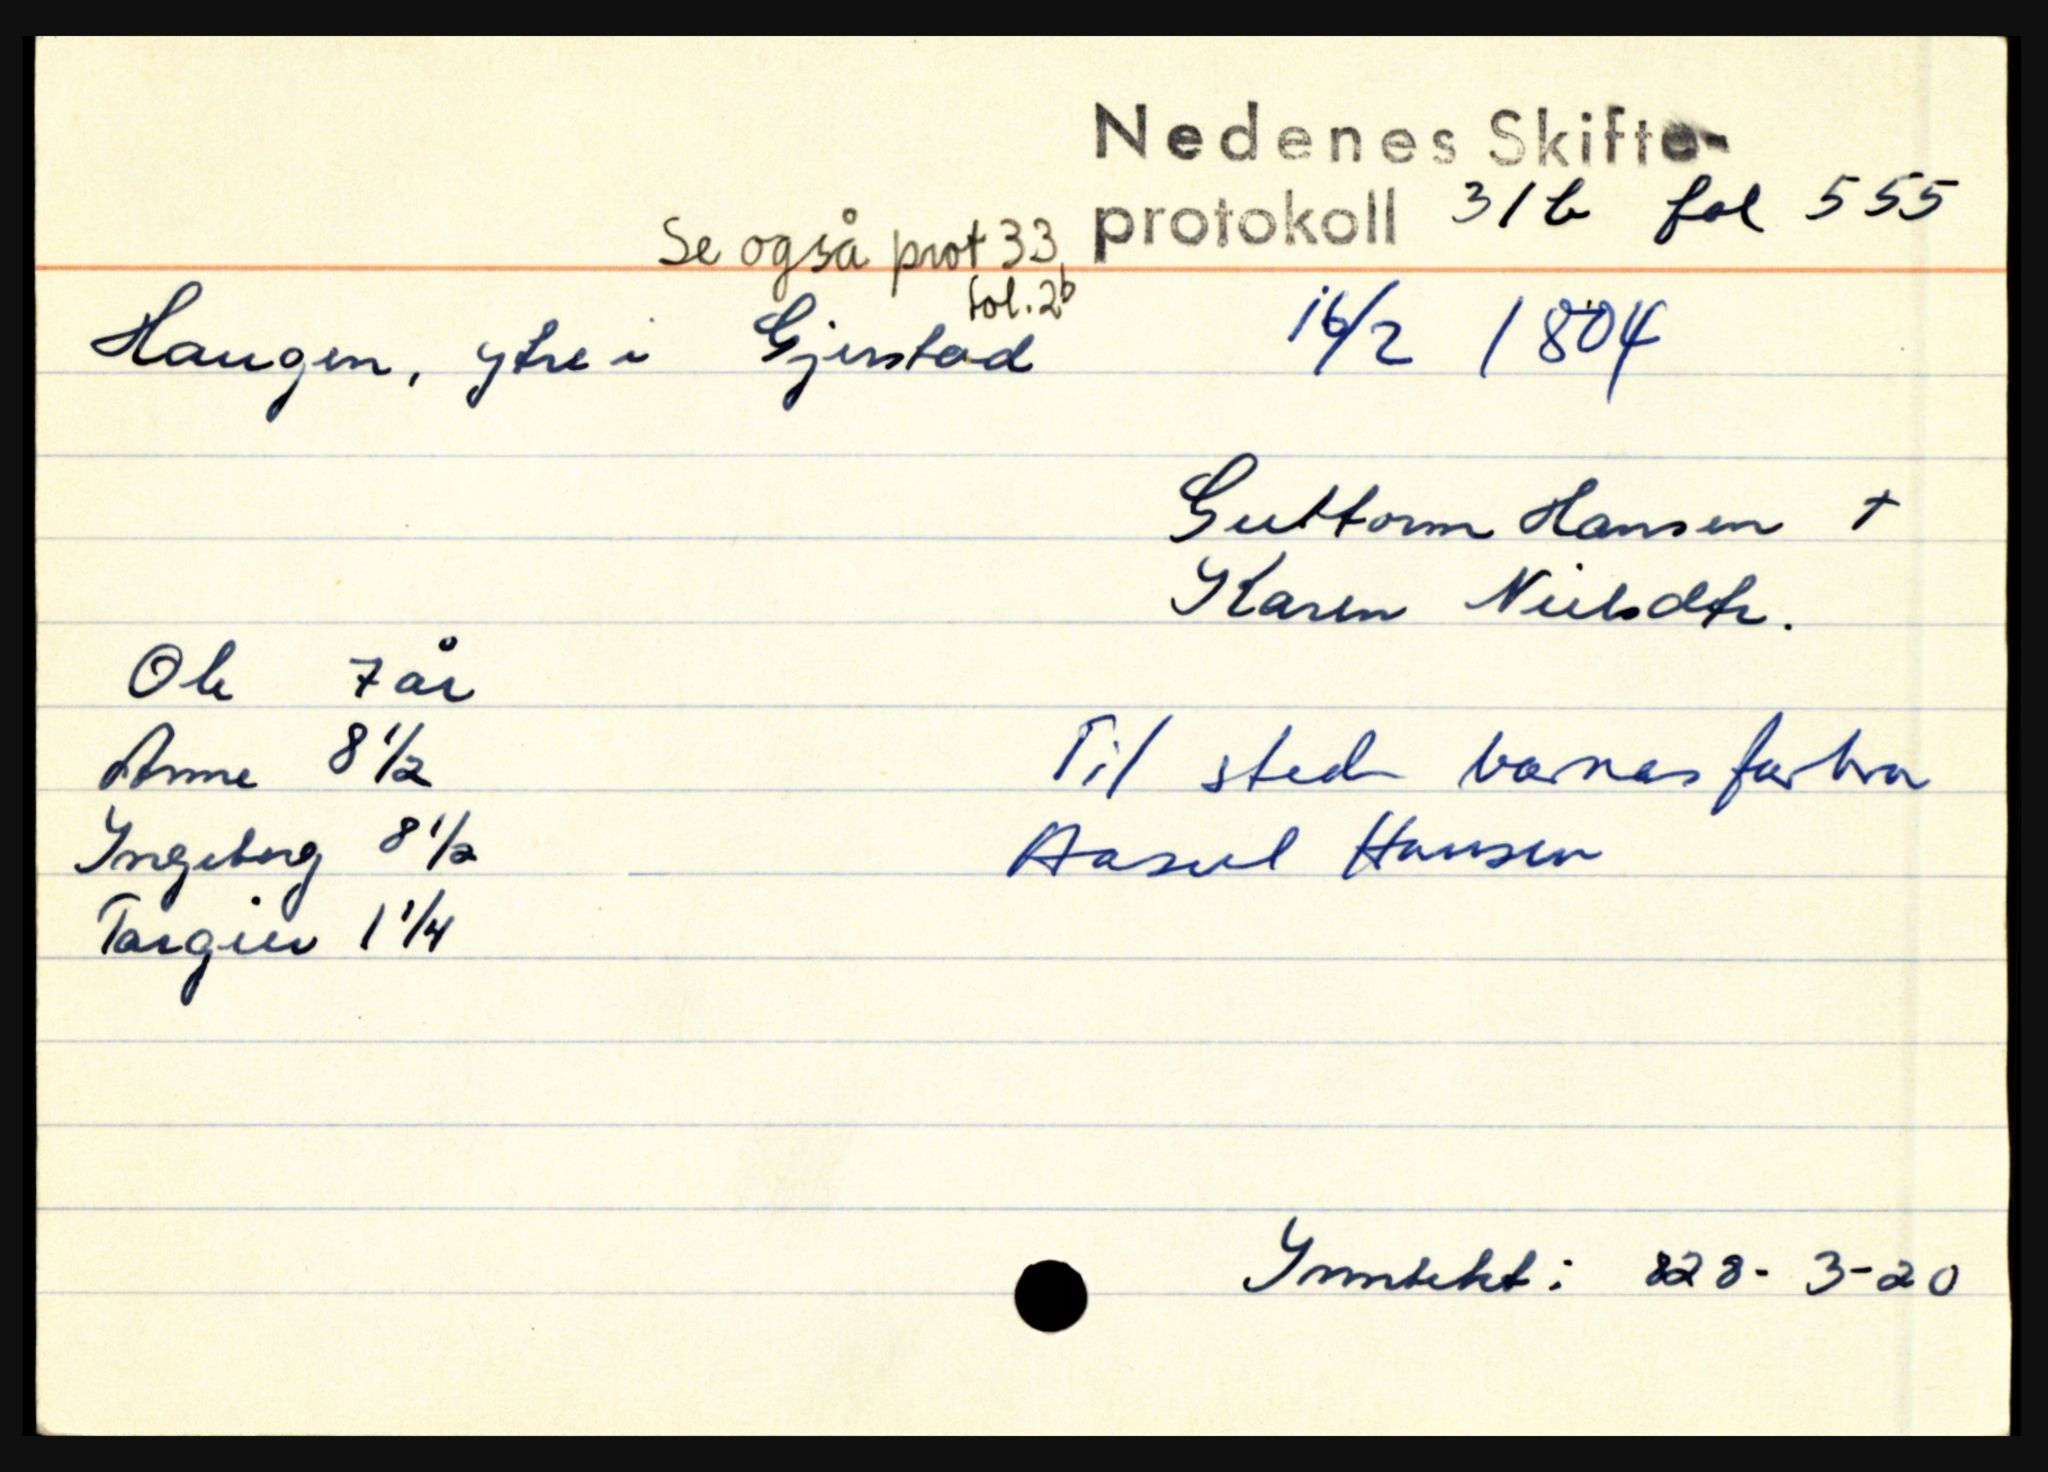 Nedenes Skifte-
protokoll 31b fol 555
Se også prot 33,
fol. 2b
Haugen, ytre i Gjerstad 16/2 1804
Guttorm Hansen †
Karen Nielsdtr.
Ole 7 år
Anne 8 1/2 Til stede barnas farbror
Yngeborg 8 1/2 Aasul Hansen
Targier 1 1/4
Ynntekt: 828-3-20